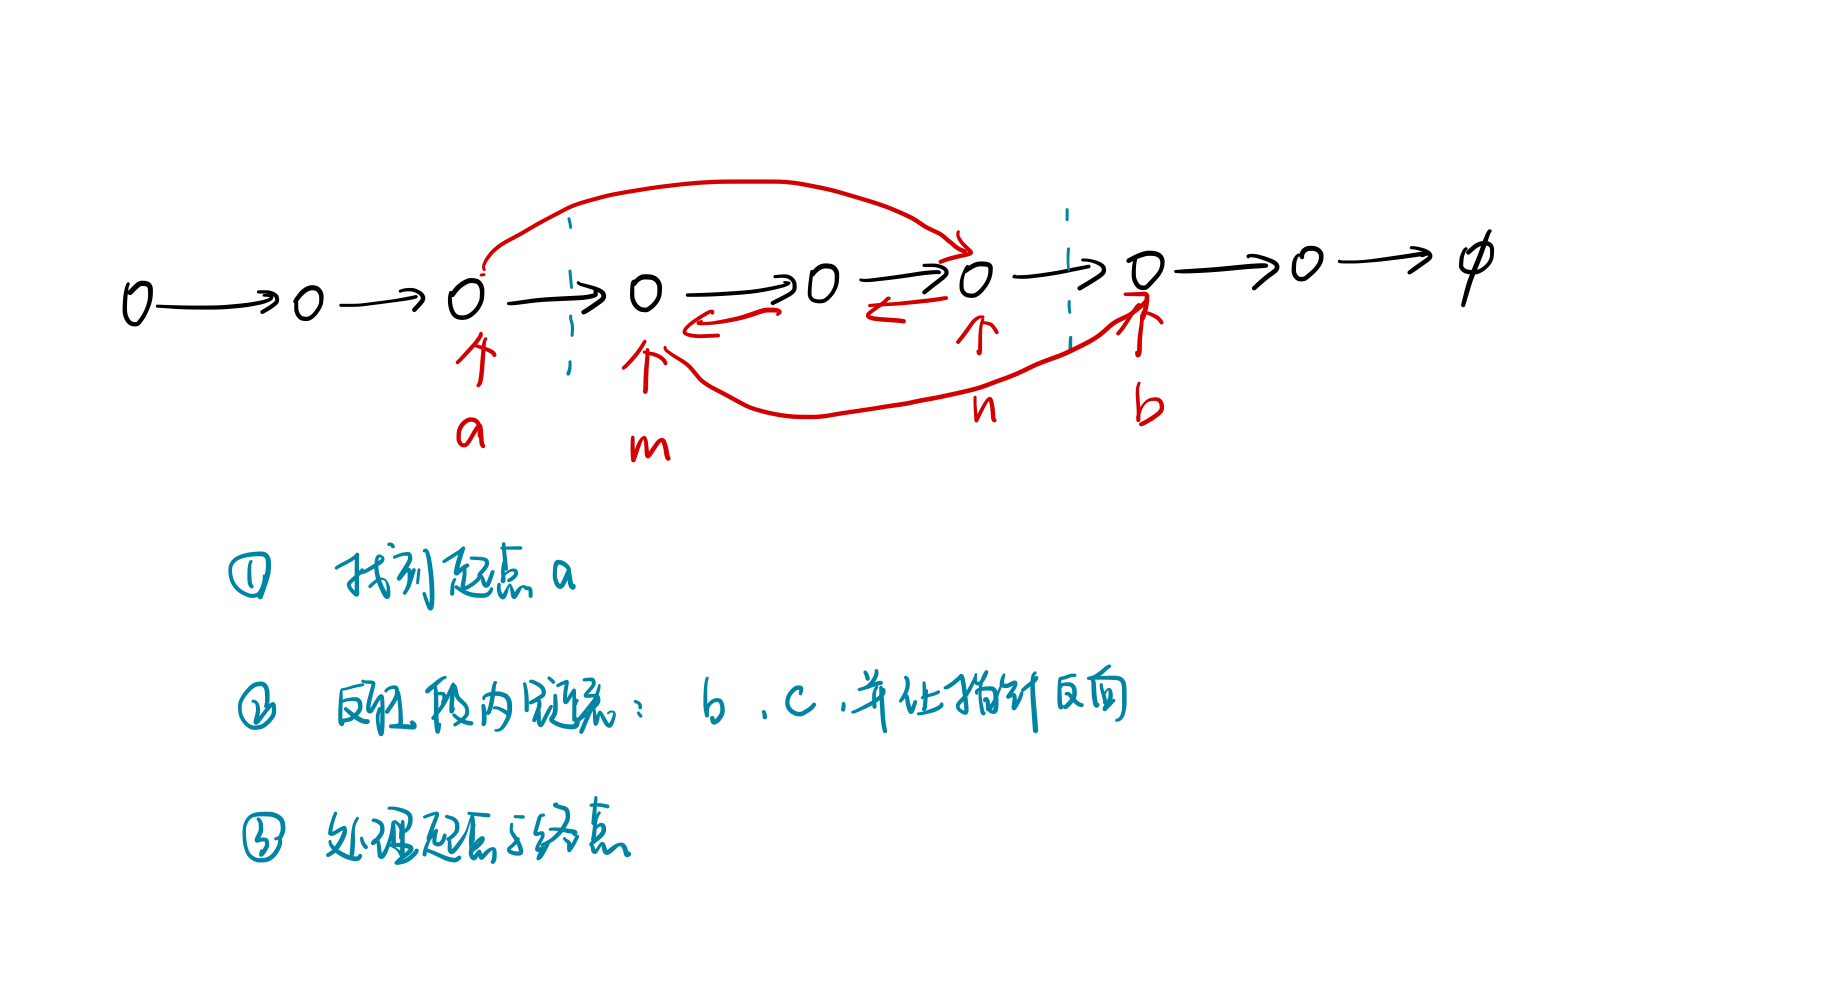 a
m
n
b
① 找到起点 a
② 反转段内链表： b 、 c ，并让指针反向
③ 处理起点与终点